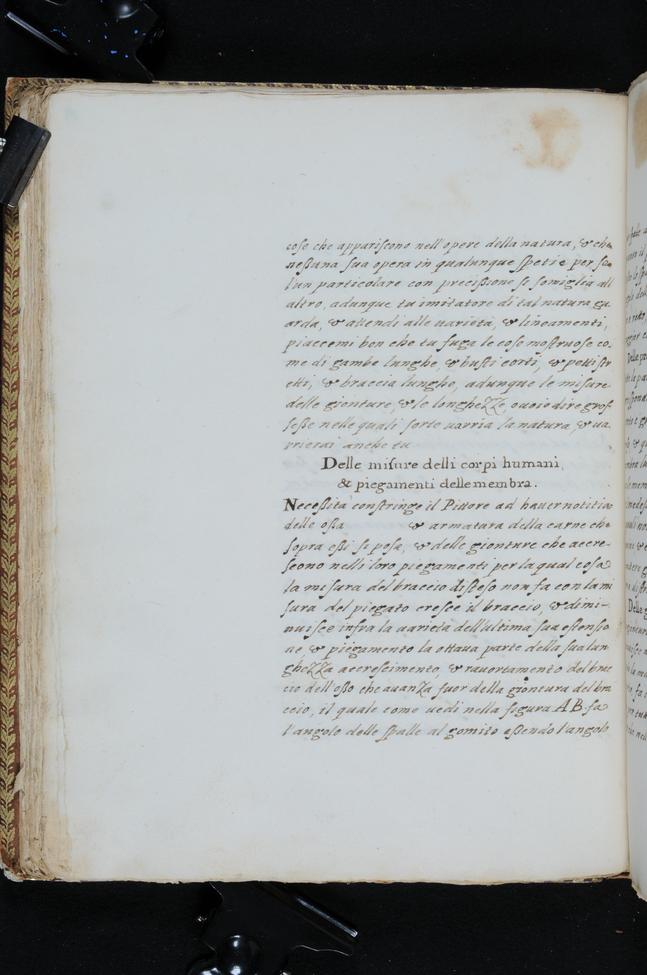 cose che appariscono nell'opere della natura, & che
neßuna sua opera in qualunque spetie per se
l'un particolare con precißione si somiglia all
altro, adunque tu imitatore di tal natura gu-
arda, & attendi alle varietà, & lineamenti,
piaccemi ben che tu fuga le cose mostruose co-
me di gambe lunghe, & busti corti, & petti str
etti, & braccia lunghe, adunque le misure
delle gionture, & le longhezze, ouoio dire gros
seße nelle quali forte varria la natura, & ua
rrierai anche tu
Delle misure delli corpi humani,
& piegamenti delle membra.
Neceßità constringe il Pittore ad hauer notitia
delle oßa & armatura della carne che
sopra eßi si posa, & delle gionture che accre-
scono nelli loro piegamenti per la qual cosa
la misura del braccio disteso non fa con la mi
sura del piegato cresce il braccio, & dimi-
nuisce infra la varietà dell'ultima sua estensio
ne, & piegamento la ottaua parte della sua lun
ghezza accrescimento, & rauortamento del brac
cio dell'oßo che auanza fuor della giontura del bra
ccio, il quale come uedi nella figura AB. fa
l'angolo delle spalle al gomito eßendo l'angolo